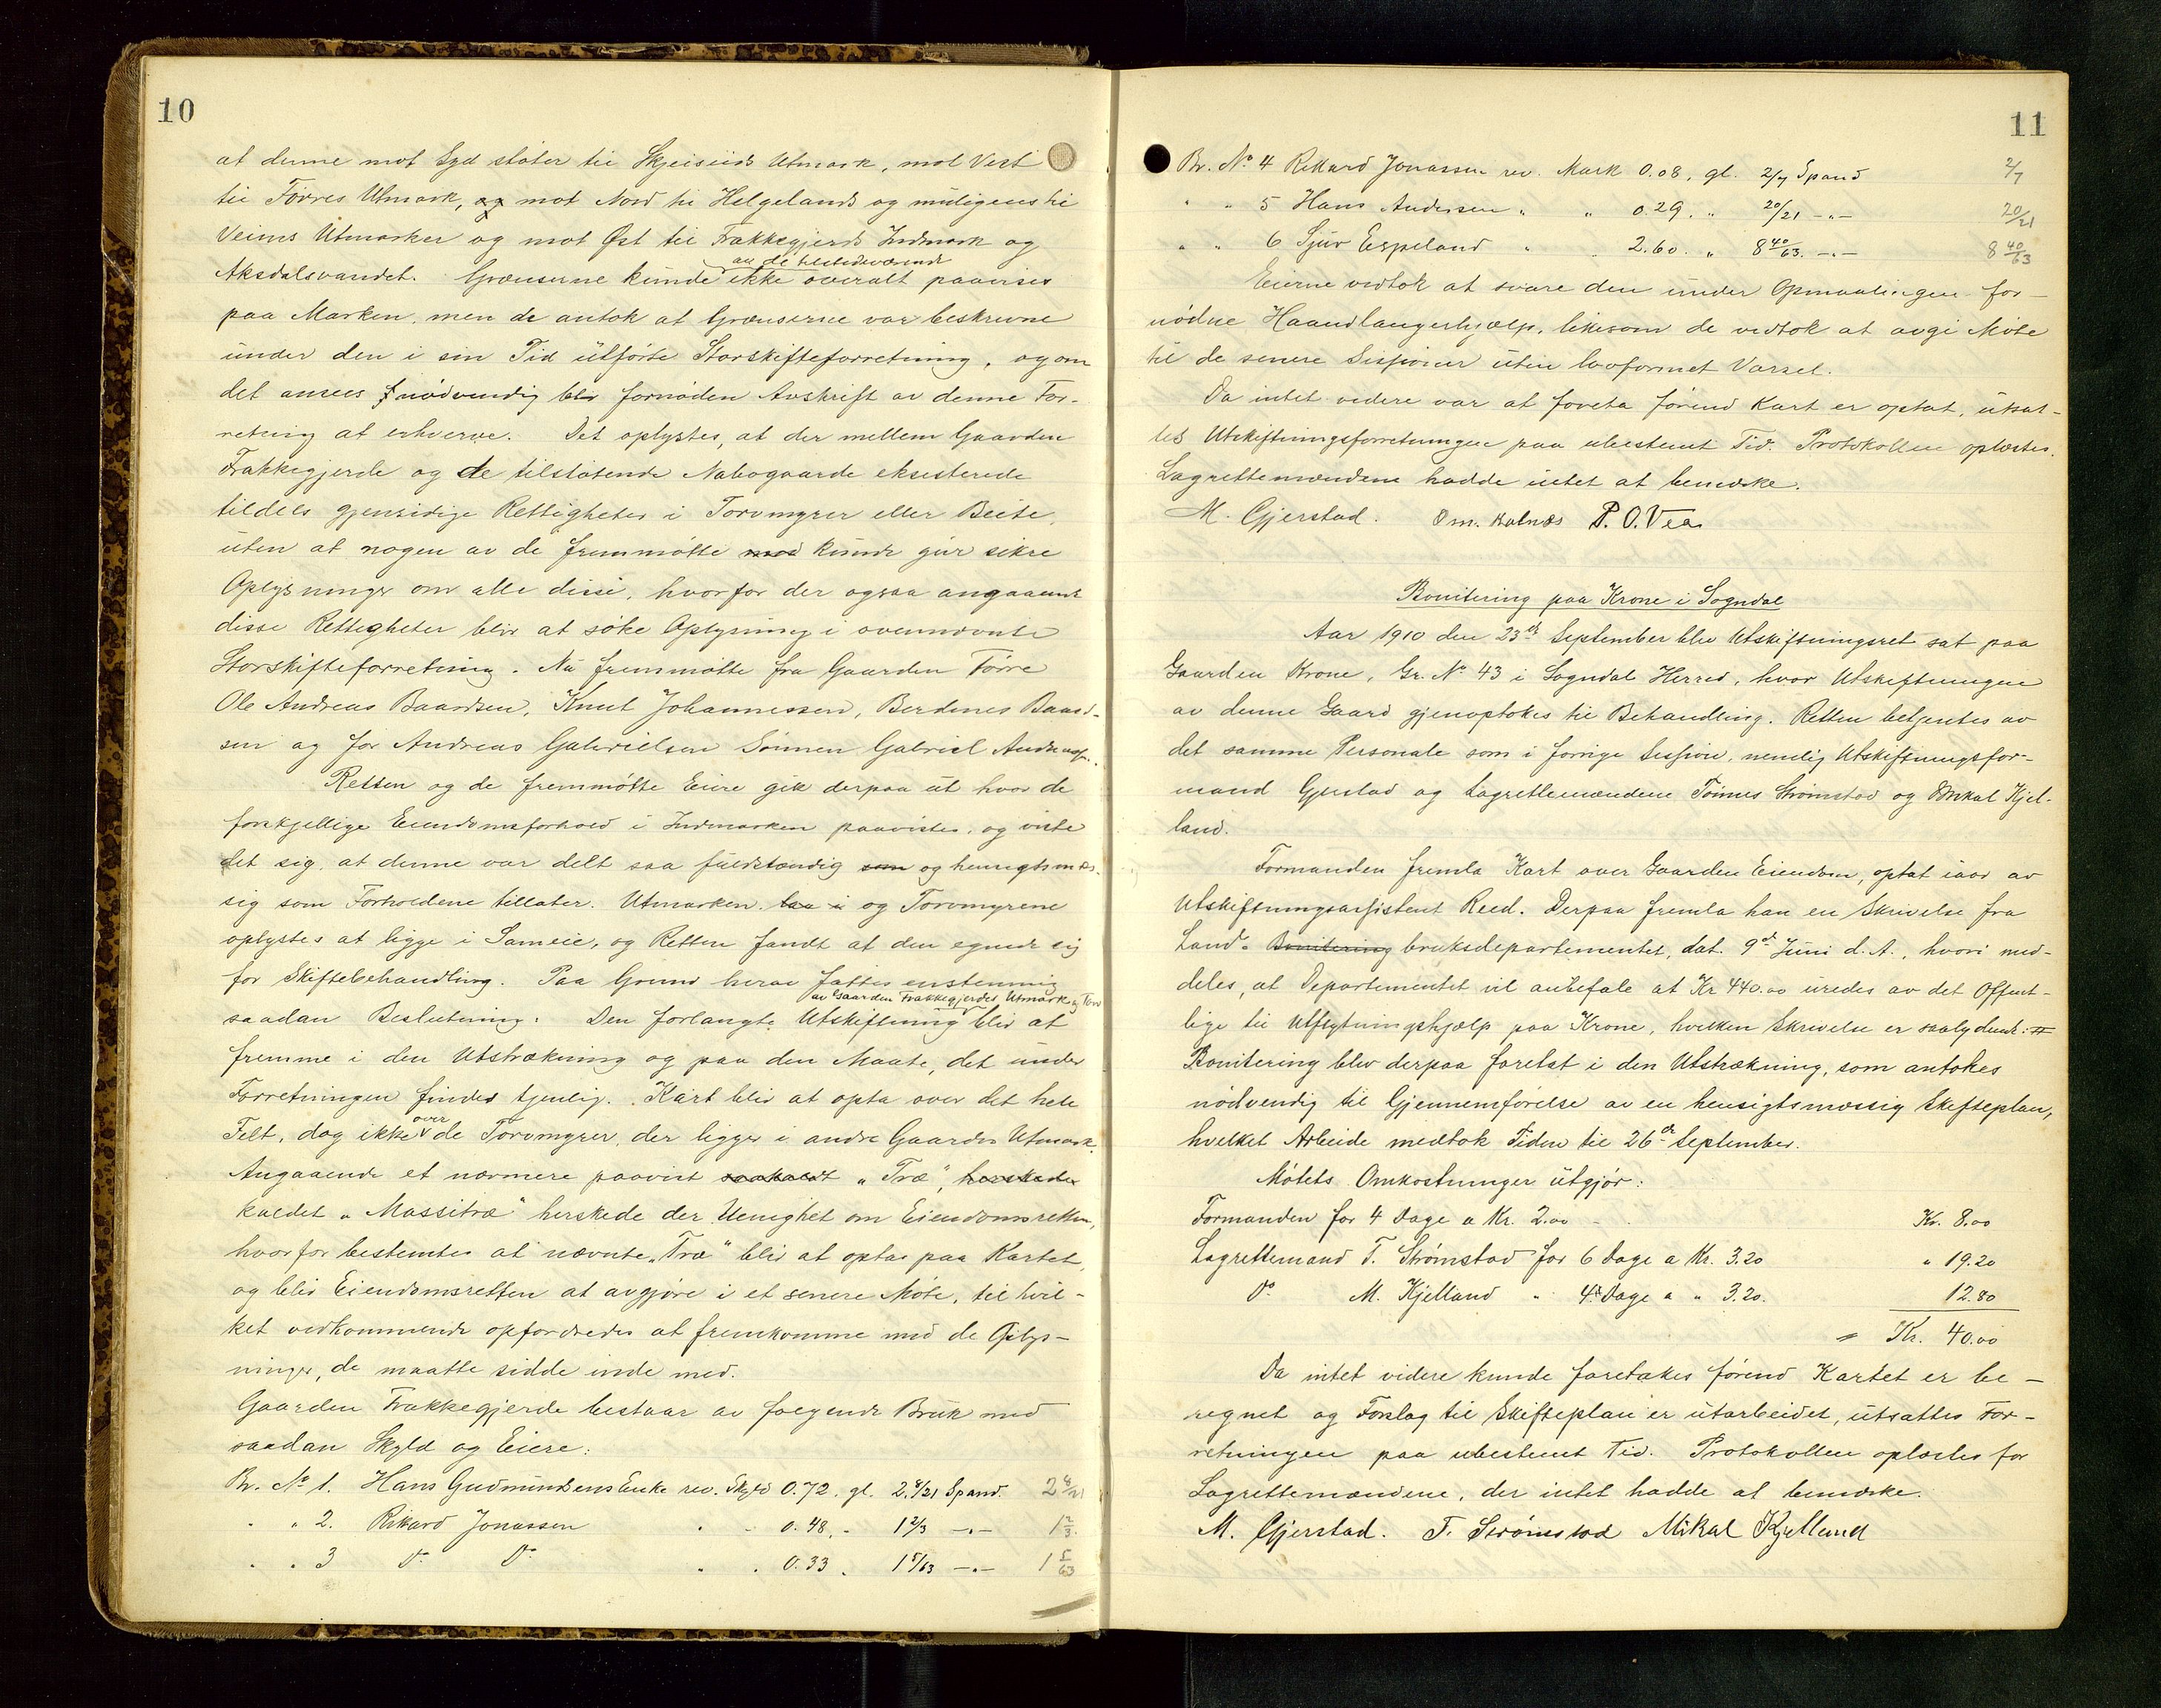 10
at denne mot Syd støter til Skjeisviks Utmark, mot Vest
til Førres Utmark, og mot Nord til Helgelands og muligens til
Veims Utmarker og mot Øst til Frakkegjerds Indmark og
av de tilstedeværende
Aksdalsvandet. Grænserne kunde ikke overalt paavises
paa Marken, men de antok at Grænserne var beskrevne
under den i sin Tid utførte Storskifteforretning, og om
det ansees nødvendig blir fornøden Avskrift av denne For-
retning at erhverve. Det oplystes, at der mellem Gaarden
Frakkegjerde og de tilstøtende Nabogaarde eksisterede
tildels gjensidige Rettigheter i Torvmyrer eller Beite,
uten at nogen av de fremmøtte med kunde give sikre
Oplysninger om alle disse, hvorfor der ogsaa angaaende
disse Rettigheter blir at søke Oplysning i ovennævnte
Storskifteforretning. Nu fremmøtte fra Gaarden Førre
Ole Andreas Baardsen, Knut Johannessen, Berdines Baard-
sen og for Andreas Gabrielsen Sønnen Gabriel Andreass.
Retten og de fremmøtte Eiere gik derpaa ut hvor de
forskjellige Eiendomsforhold i Indmarken paavistes, og viste
det sig, at denne var delt saa fuldstændig som og hensigtsmæs-
sig som Forholdene tillater. Utmarken laa i og Torvmyrene
oplystes at ligge i Sameie, og Retten fandt at den egnede sig
for Skiftebehandling. Paa Grund herav fattes enstemmig
av Gaarden Frakkegjerdes Utmark og Torv
saadan Beslutning: Den forlangte Utskiftning blir at
fremme i den Utstrækning og paa den Maate, det under
Forretningen findes tjenlig. Kart blir at opta over det hele
over
Felt, dog ikke de Torvmyrer, der ligger i andre Gaardes Utmark.
Angaaende et nærmere paavist saakaldt „Træ", herskede
kaldet „Massitræ" herskede der Uenighet om Eiendomsretten,
hvorfor bestemtes at nævnte „Træ" blir at optas paa Kartet,
og blir Eiendomsretten at avgjøre i et senere Møte, til hvil-
ket vedkommende opfordredes at fremkomme med de Oplys-
ninger, de maatte sidde inde med.
Gaarden Frakkegjerde bestaar av følgende Bruk med
saadan Skyld og Eiere:
Br. No 1. Hans Gudmundsens Enke rev. Skyld 0.72, gl. 2 4/21 Spand. 2 4/21
" " 2. Rikard Jonassen " " 0.48, " 1 2/3 —"— 1 2/3.
" " 3 Do Do " " 0.33 " 1 5/63 —"— 1 5/63
11
Br. No 4 Rikard Jonassen rev. Mark 0.08, gl. 2/7 Spand 2/7
" " 5 Hans Andersen " " 0.29. " 20/21 —"— 20/21
" " 6 Sjur Espeland " " 2.60. " 8 40/63. —"— 8 40/63
Eierne vedtok at svare den under Opmaalingen for-
nødne Haandlangerhjælp, likesom de vedtok at avgi Møte
til de senere Sessioner uten lovformet Varsel.
Da intet videre var at foreta førend Kart er optat, utsat-
tes Utskiftningsforretningen paa ubestemt Tid. Protokollen oplæstes.
Lagrettemændene hadde intet at bemærke.
M. Gjerstad. Om. Kolnæs P. O. Vea
Bonitering paa Krone i Sogndal
Aar 1910 den 23de September blev Utskiftningsret sat paa
Gaarden Krone, Gr. No 43 i Sogndal Herred, hvor Utskiftningen
av denne Gaard gjenoptokes til Behandling. Retten betjentes av
det samme Personale som i forrige Session, nemlig Utskiftningsfor-
mand Gjerstad og Lagrettemændene Tønnes Strømstad og Mikal Kjel-
land.
Formanden fremla Kart over Gaarden Eiendom, optat iaar av
Utskiftningsassistent Reed. Derpaa fremla han en Skrivelse fra
Land- Bonitering bruksdepartementet, dat. 9de Juni d. A., hvori med-
deles, at Departementet vil anbefale at Kr 440.00 uredes av det Offent-
lige til Utflytningshjælp paa Krone, hvilken Skrivelse er saalydende: #
Bonitering blev derpaa foretat i den Utstrækning, som antokes
nødvendig til Gjennemførelse av en hensigtsmæssig Skifteplan,
hvilket Arbeide medtok Tiden til 26de September.
Møtets Omkostninger utgjør:
Formanden for 4 Dage a Kr. 2.00 - Kr. 8.00
Lagrettemand T. Strømstad for 6 Dage a Kr. 3.20 " 19.20
Do M. Kjelland " 4 Dage a " 3.20. 12.80
= Kr. 40.00
Da intet videre kunde foretakes førend Kartet er be-
regnet og Forslag til Skifteplan er utarbeidet, utsattes For-
retningen paa ubestemt Tid. Protokollen oplæstes for
Lagrettemændene, der intet hadde at bemærke.
M. Gjerstad. T. Strømstad Mikal Kjelland